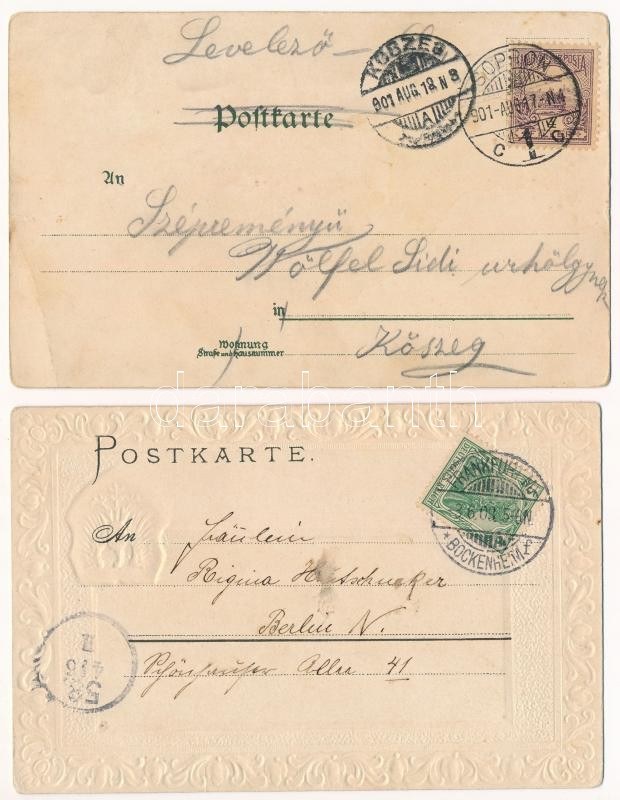 Levelező –
Postkarte
KŐSZEG
901 AUG. 18. N 8
A
SOPRON
901 – AUG 17 – N 4
C 1 C
POSTA
An
Szépreményü
Wölfel Sidi urhölgynek
in
Wohnung
Straße und Hausnummer
Kőszeg
darabanth
POSTKARTE.
FRANKFURT
3.6.03. 5-6N.
* BOCKENHEIM *
An
Fräulein
Regina
Berlin N.
Schönhauser Allee 41